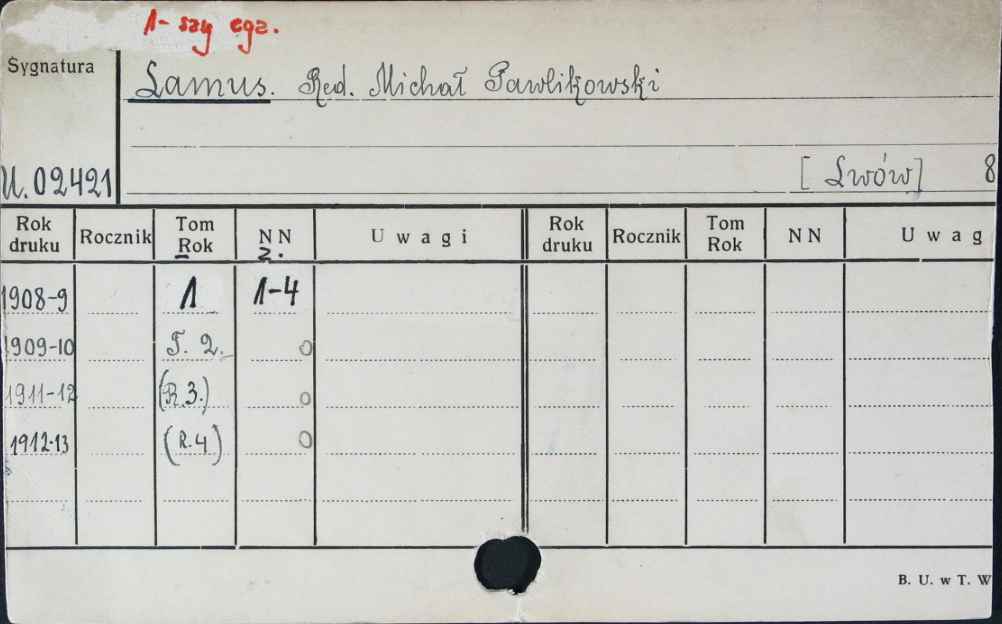 1-szy egz.
Sygnatura
Lamus. Red. Michał Pawlikowski
U. 02421 [Lwów] 8
Rok druku Rocznik Tom Rok NN Uwagi Rok druku Rocznik Tom Rok NN Uwag
Z.
1908-9 1 1-4
1909-10 T. 2. o
1911-12 (R.3.) o
1912-13 (R.4) o
B. U. w T. W